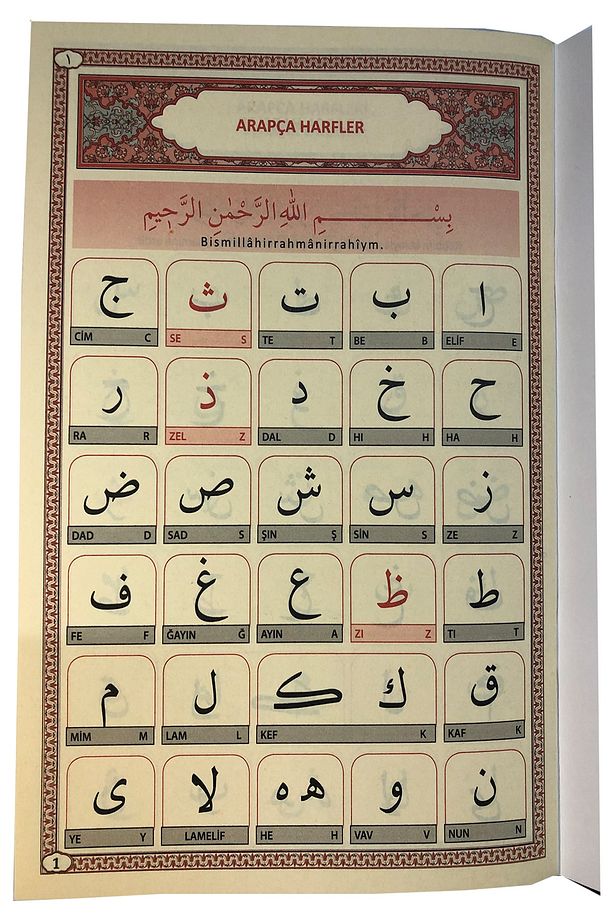 ١
ARAPÇA HARFLER
بِسْمِ اللّٰهِ الرَّحْمٰنِ الرَّحٖيمِ
Bismillâhirrahmânirrahîym.
ا ب ت ث ج
ELİF E BE B TE T SE S CİM C
ح خ د ذ ر
HA H HI H DAL D ZEL Z RA R
ز س ش ص ض
ZE Z SİN S ŞIN Ş SAD S DAD D
ط ظ ع غ ف
TI T ZI Z AYIN A ĞAYIN Ğ FE F
ق ك ڪ ل م
KAF K KEF K LAM L MİM M
ن و ه ه لا ى
NUN N VAV V HE H LAMELİF YE Y
1